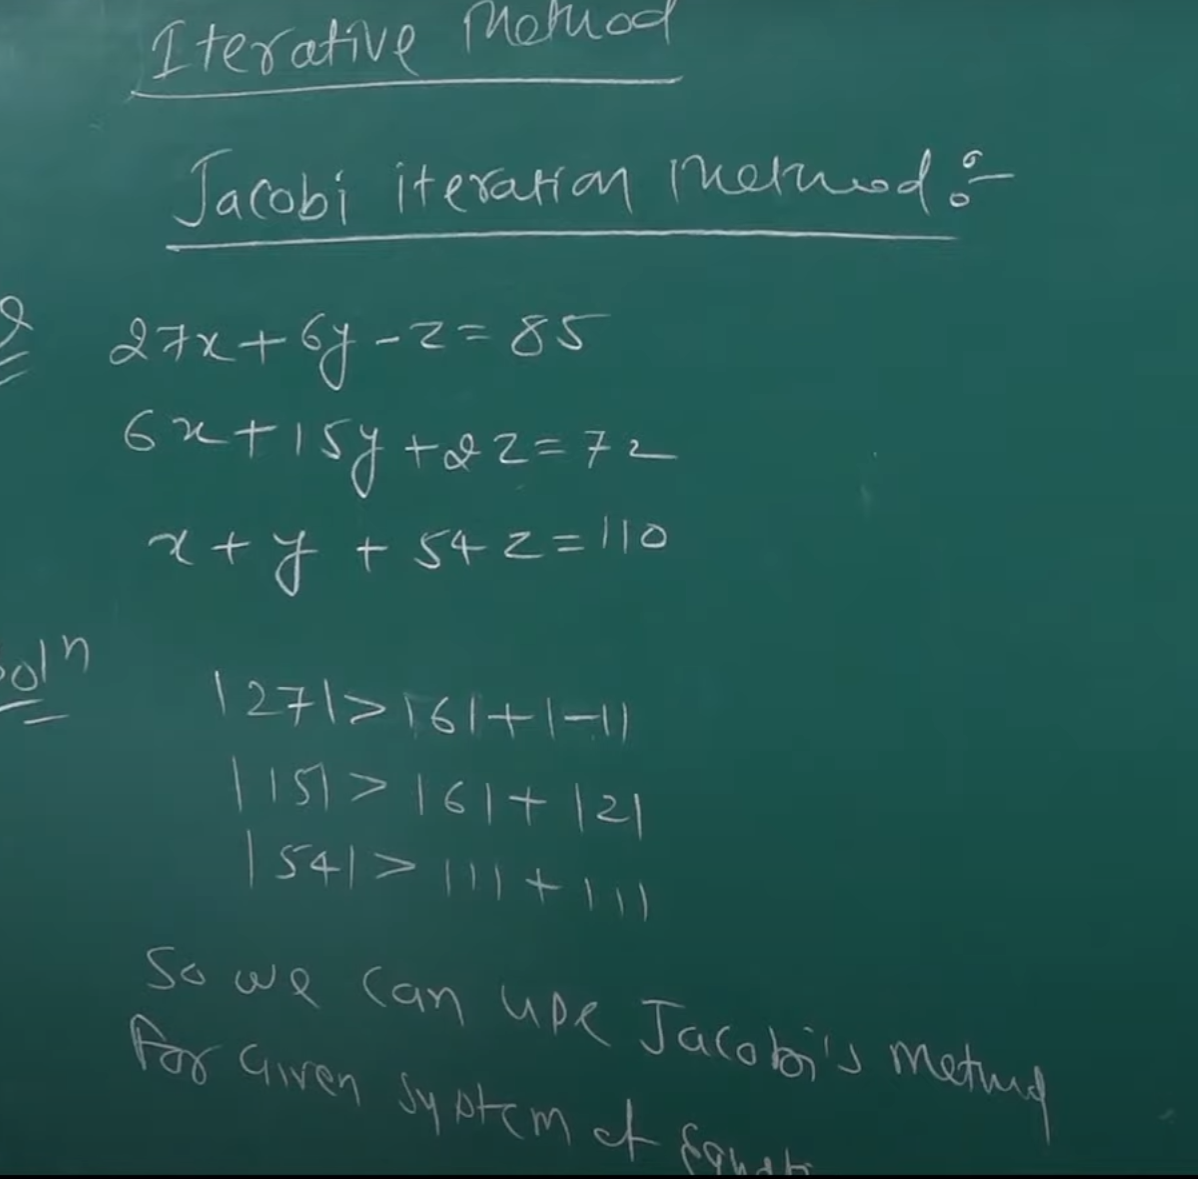 Iterative Method
Jacobi iteration Method :-
Q 27x+6y-z=85
6x+15y+2z=72
x+y+54z=110
Solⁿ |27|>|6|+|-1|
|15|>|6|+|2|
|54|>|1|+|1|
So we can use Jacobi's Method
For Given System of